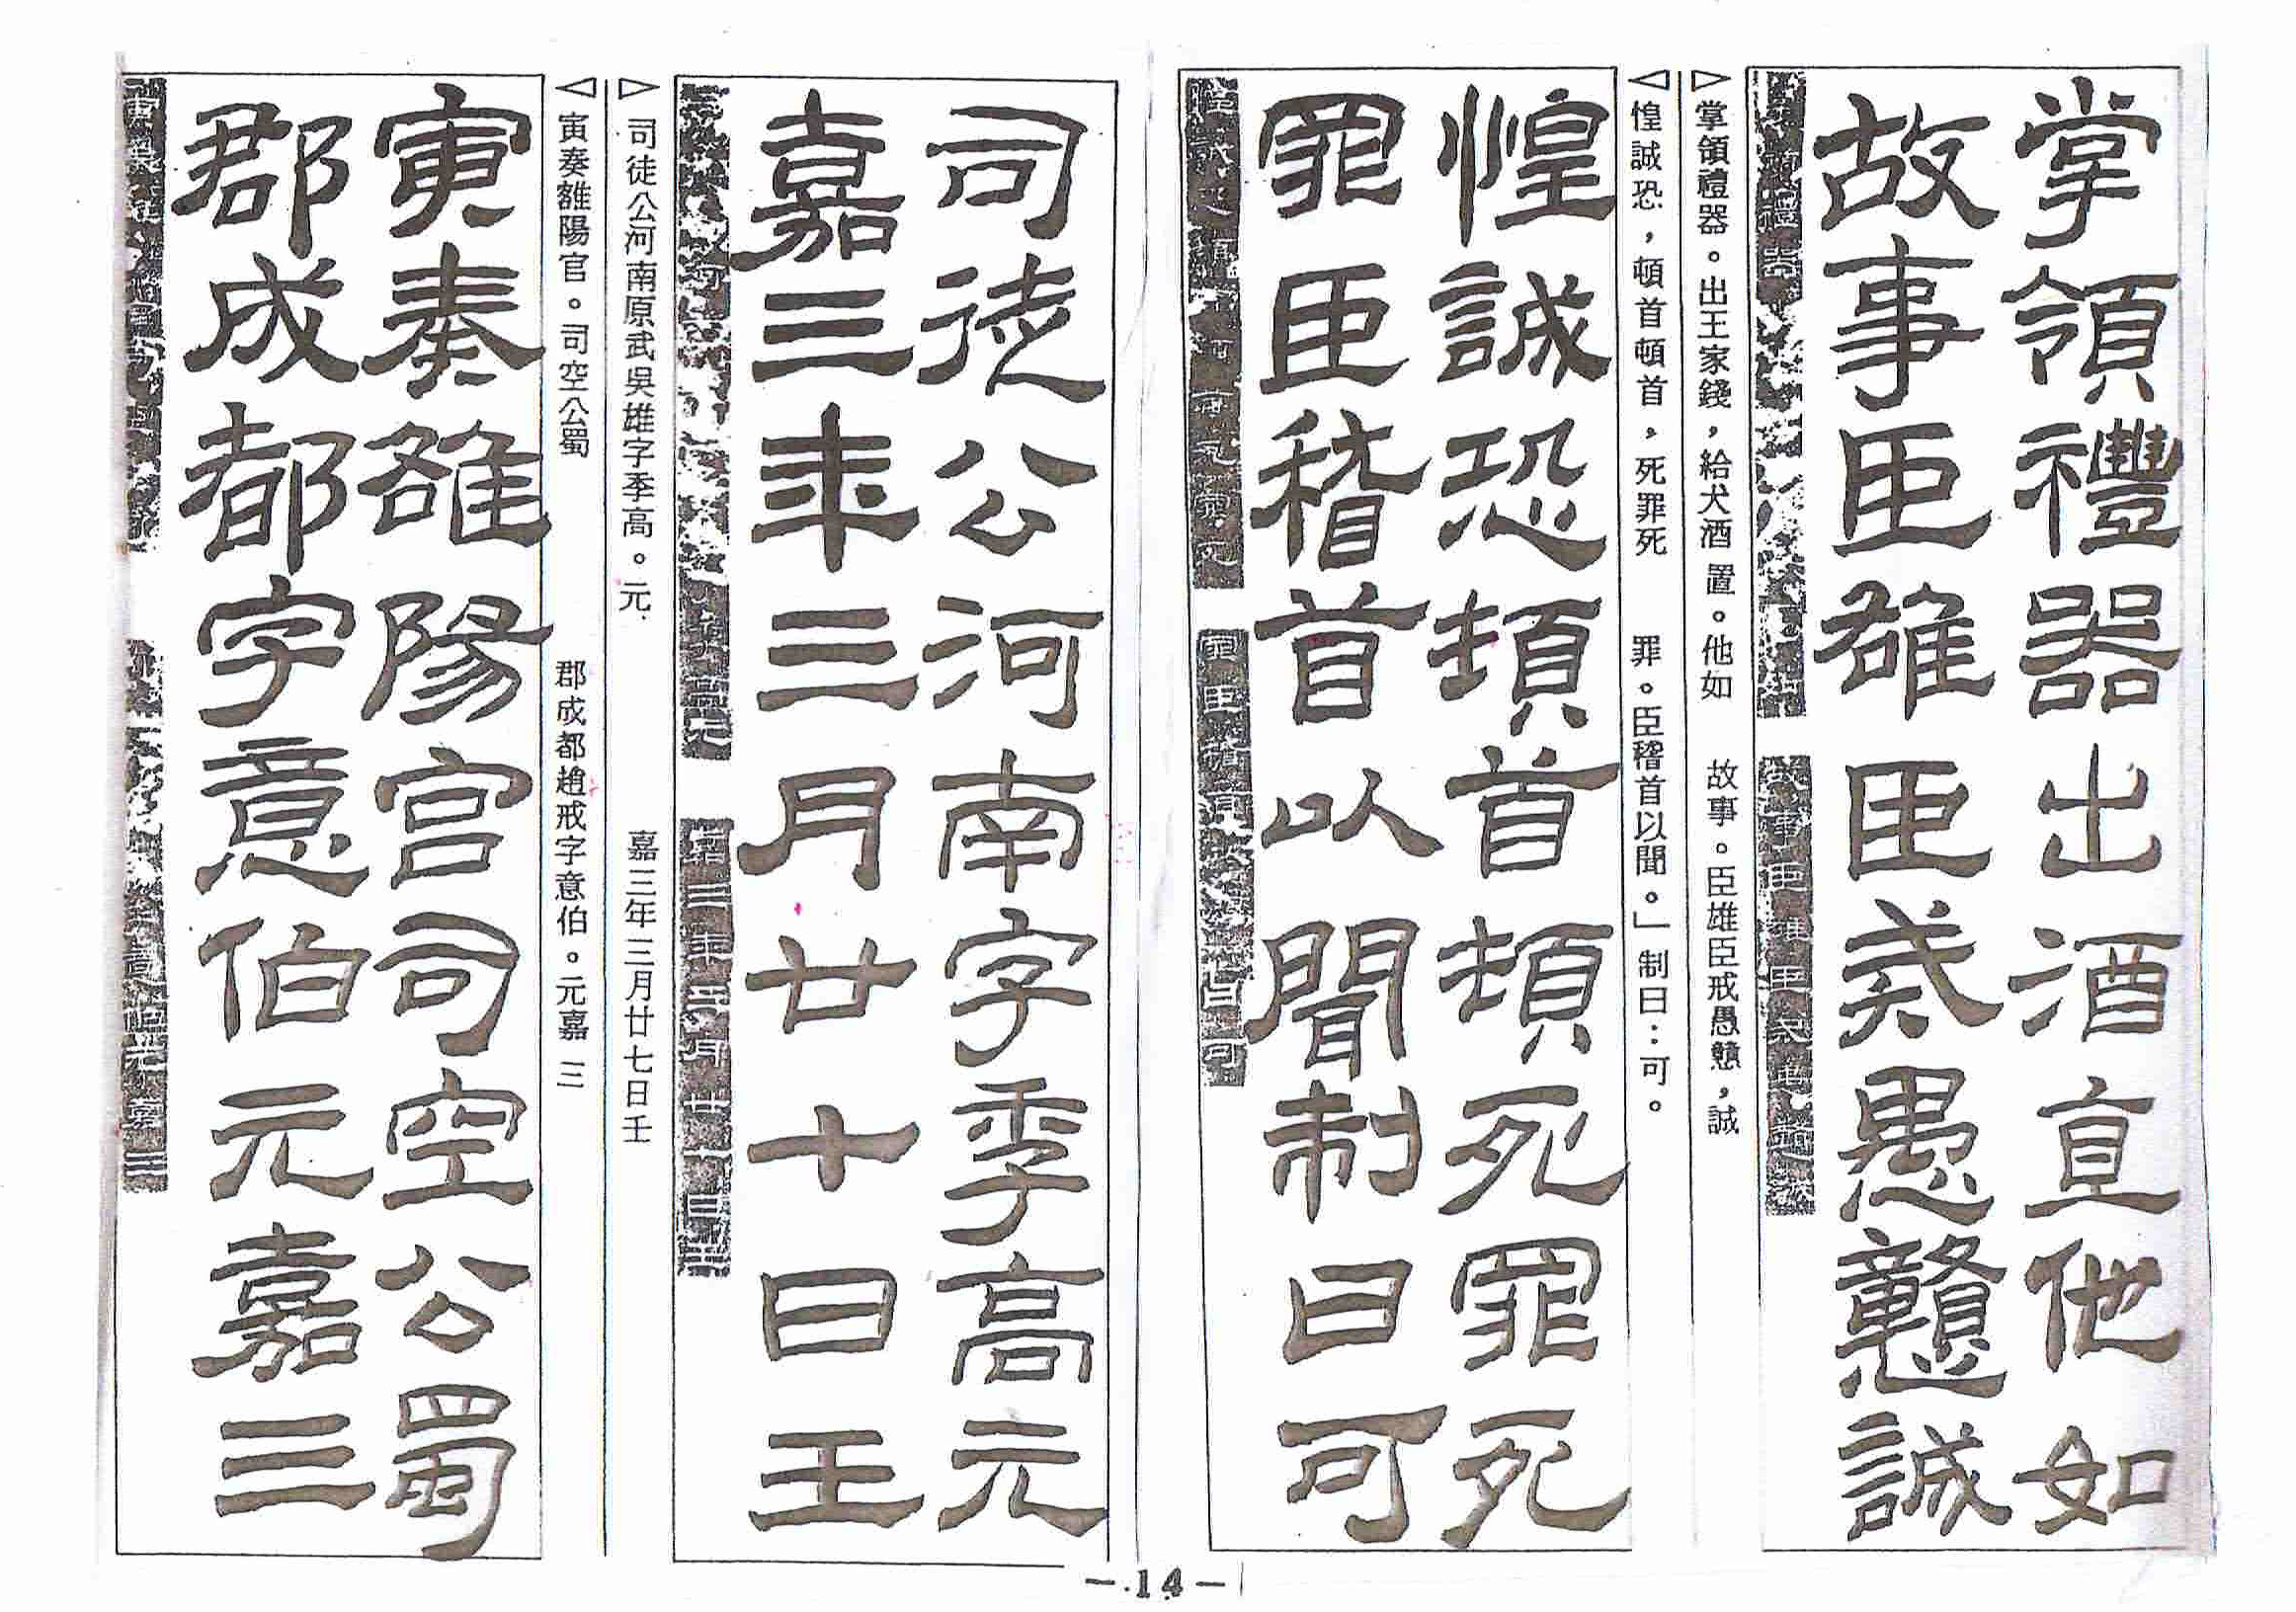 掌領禮器出酒直他如
故事臣雄臣戒愚戇誠
▷掌領禮器。出王家錢，給犬酒置。他如
故事。臣雄臣戒愚戇，誠
◁惶誠恐，頓首頓首，死罪死
罪。臣稽首以聞。」制曰：可。
惶誠恐頓首頓死罪死
罪臣稽首以聞制曰可
司徒公河南字季高元
嘉三年三月廿十日王
▷司徒公河南原武吳雄字季高。元
嘉三年三月廿七日壬
◁寅奏雒陽官。司空公蜀
郡成都趙戒字意伯。元嘉三
寅奏雒陽宮司空公蜀
郡成都字意伯元嘉三
—14—